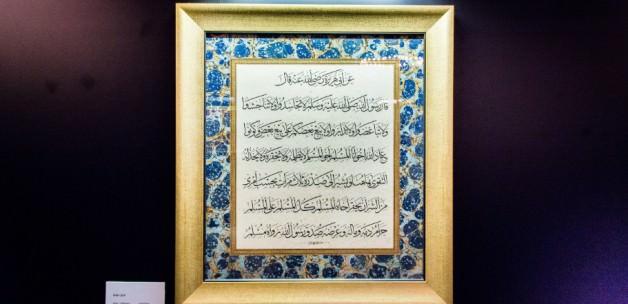 عن أبي هريرة رضي الله عنه قال
قال رسول الله صلى الله عليه وسلم لا تحاسدوا ولا تناجشوا
ولا تباغضوا ولا تدابروا ولا يبع بعضكم على بيع بعض وكونوا
عباد الله إخوانا المسلم أخو المسلم لا يظلمه ولا يحقره ولا يخذله
التقوى هاهنا ويشير إلى صدره ثلاث مرات بحسب امرئ
من الشر أن يحقر أخاه المسلم كل المسلم على المسلم
حرام دمه وماله وعرضه صدق رسول الله رواه مسلم